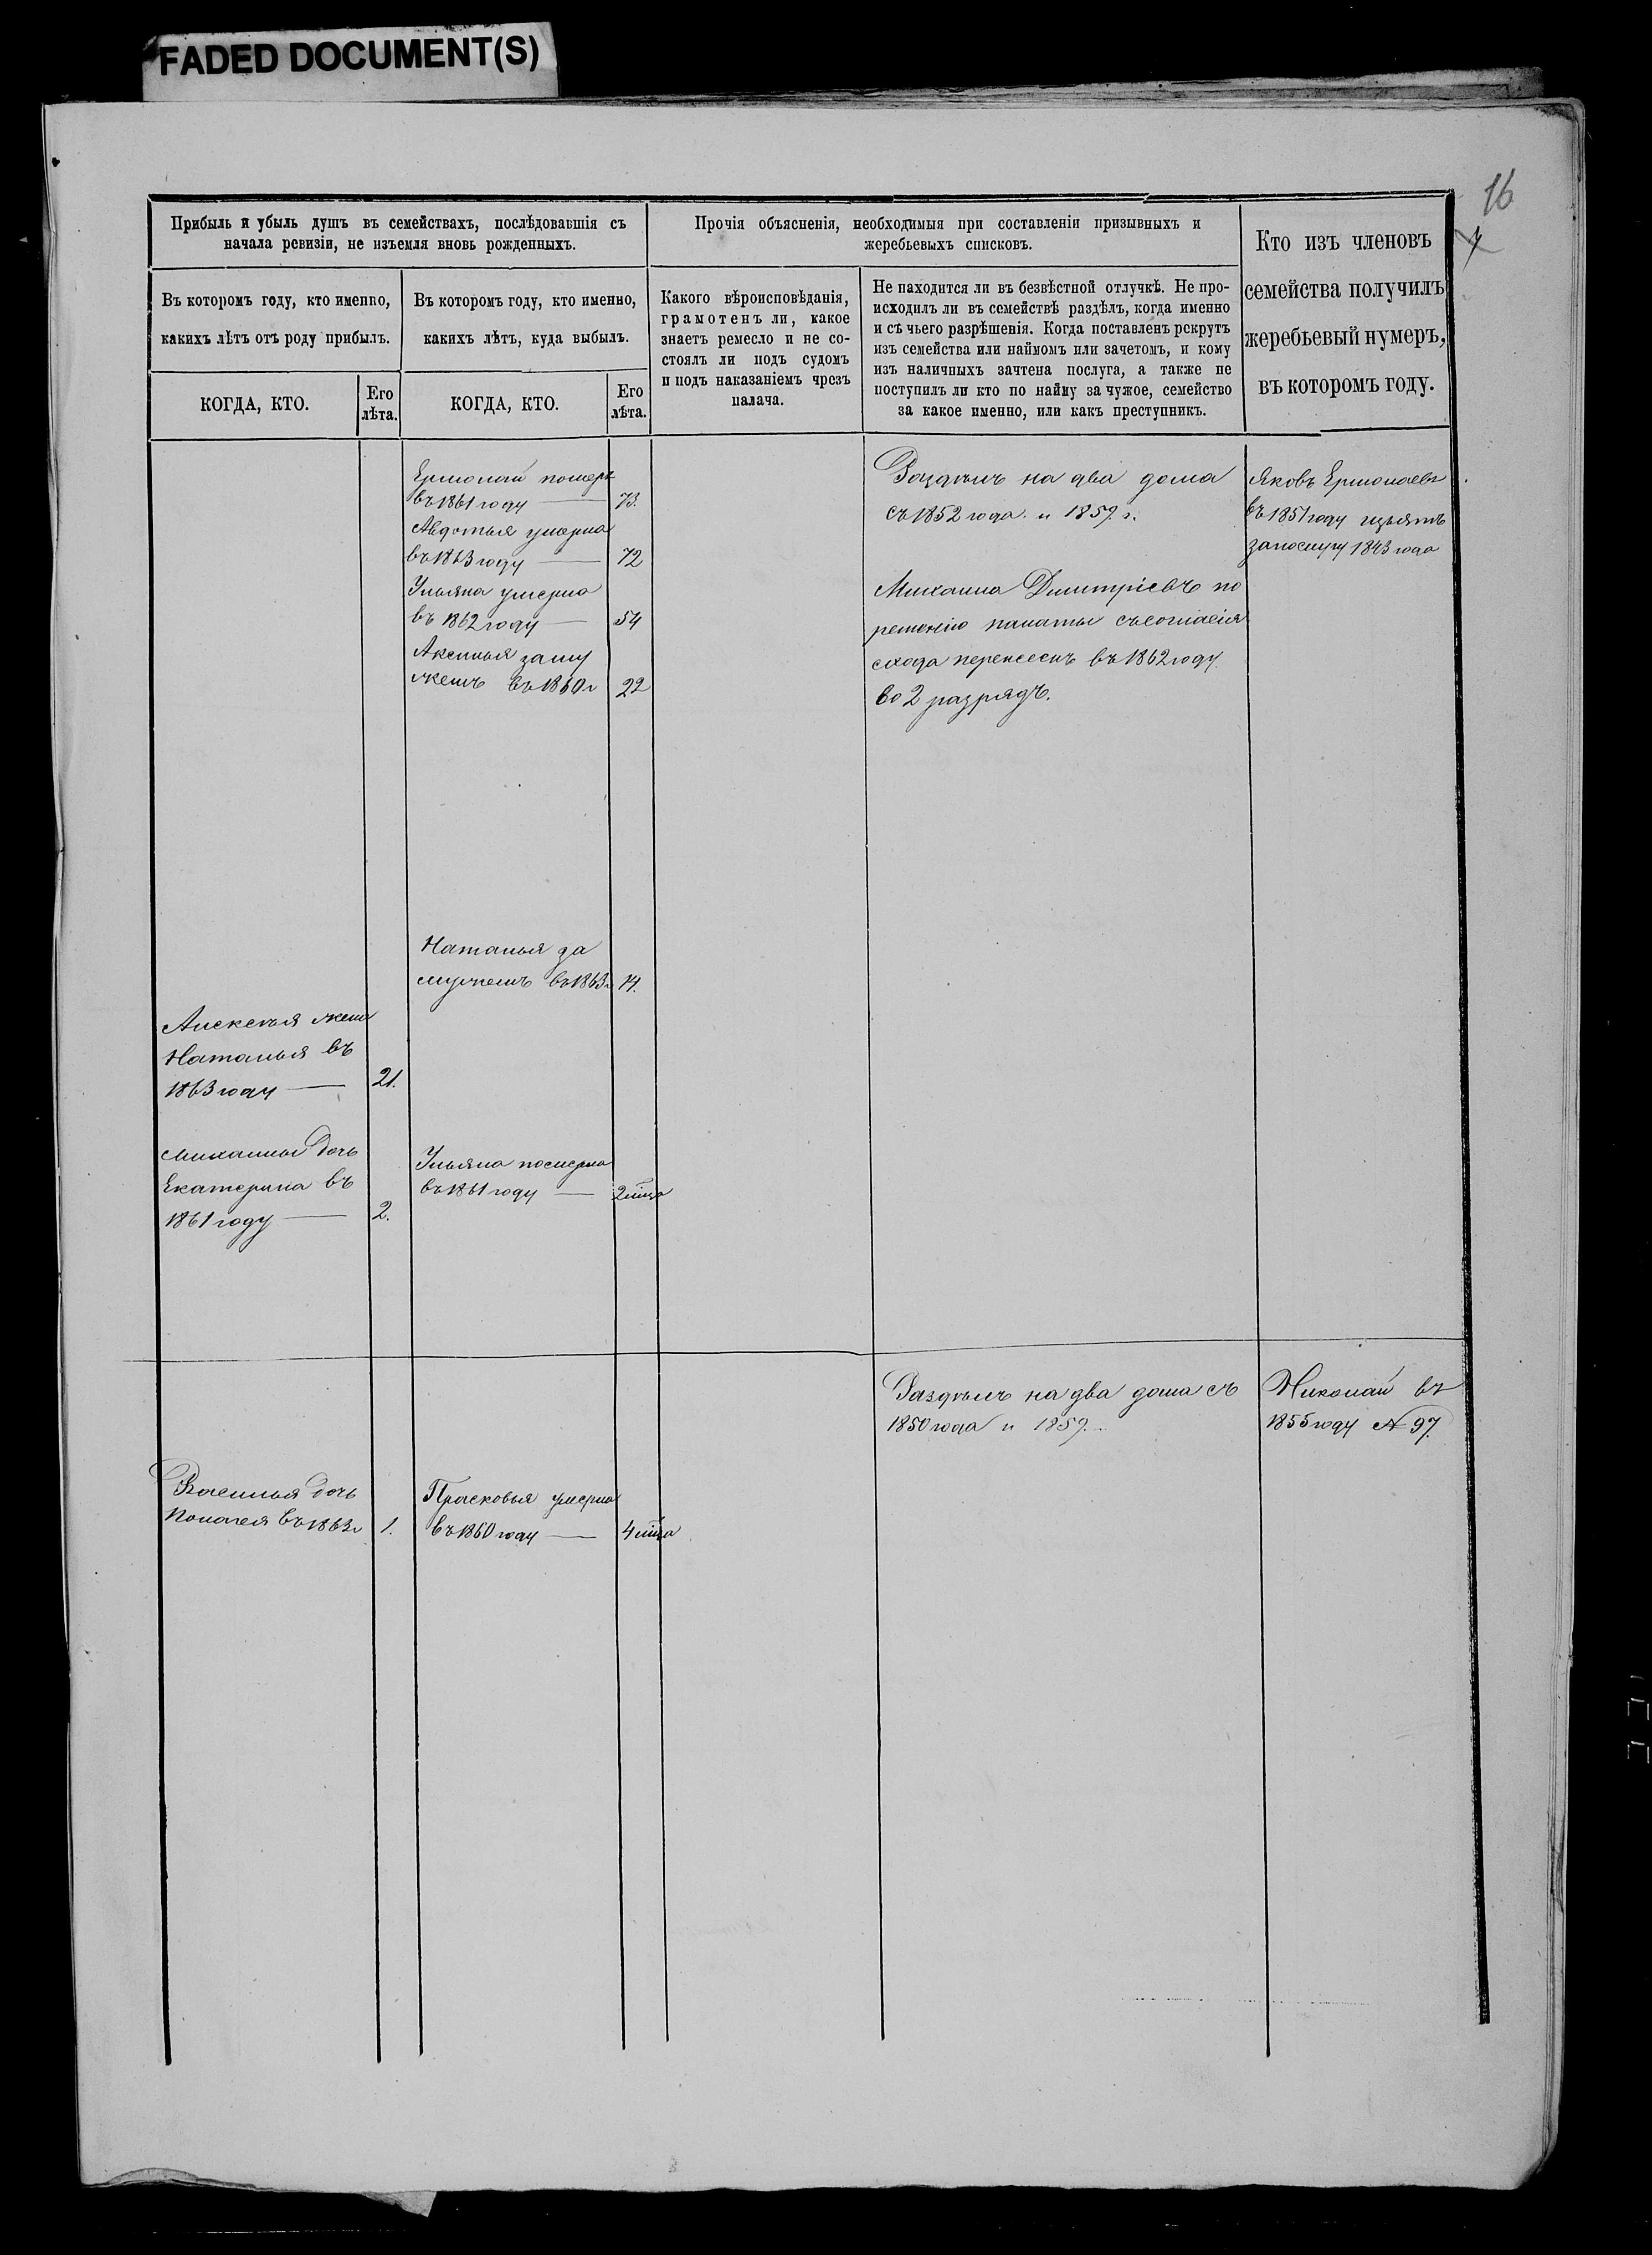 FADED DOCUMENT(S)
16
Прибыль и убыль душъ въ семействахъ, послѣдовавшія съ
начала ревизіи, не изъемля вновь рожденныхъ.
Прочія объясненія, необходимыя при составленіи призывныхъ и
жеребьевыхъ списковъ.
Кто изъ членовъ
семейства получилъ
жеребьевый нумеръ,
въ которомъ году.
Въ которомъ году, кто именно,
какихъ лѣтъ отъ роду прибылъ.
Въ которомъ году, кто именно,
какихъ лѣтъ, куда выбылъ.
Какого вѣроисповѣданія,
грамотенъ ли, какое
знаетъ ремесло и не со-
стоялъ ли подъ судомъ
и подъ наказаніемъ чрезъ
палача.
Не находится ли въ безвѣстной отлучкѣ. Не про-
исходилъ ли въ семействѣ раздѣлъ, когда именно
и съ чьего разрѣшенія. Когда поставленъ рекрутъ
изъ семейства или наймомъ или зачетомъ, и кому
изъ наличныхъ зачтена послуга, а также не
поступилъ ли кто по найму за чужое, семейство
за какое именно, или какъ преступникъ.
КОГДА, КТО.
Его
лѣта.
КОГДА, КТО.
Его
лѣта.
Ермолай померъ
въ 1861 году — 73.
Авдотья умерла
въ 1863 году — 72
Ульяна умерла
въ 1862 году — 54
Аксинья заму
жемъ въ 1860 г 22
Раздѣлъ на два дома
съ 1852 года и 1859 г.
Михаила Дмитріевъ по
решенію палаты съ согласія
схода перенесенъ въ 1862 году
во 2 разрядъ.
Яковъ Ермолаевъ
въ 1851 году изъятъ
за послугу 1843 года
Наталья за
мужемъ въ 1863 г 14.
Алексѣя жена
Наталья въ
1863 году — 21.
Михаилы дочь
Екатерина въ
1861 году — 2.
Ульяна померла
въ 1861 году — 2 мѣца
Раздѣлъ на два дома съ
1850 года и 1859.
Николай въ
1855 году № 97.
Василья дочь
Пелагея въ 1863 г 1.
Прасковья умерла
въ 1860 году — 4 мѣца